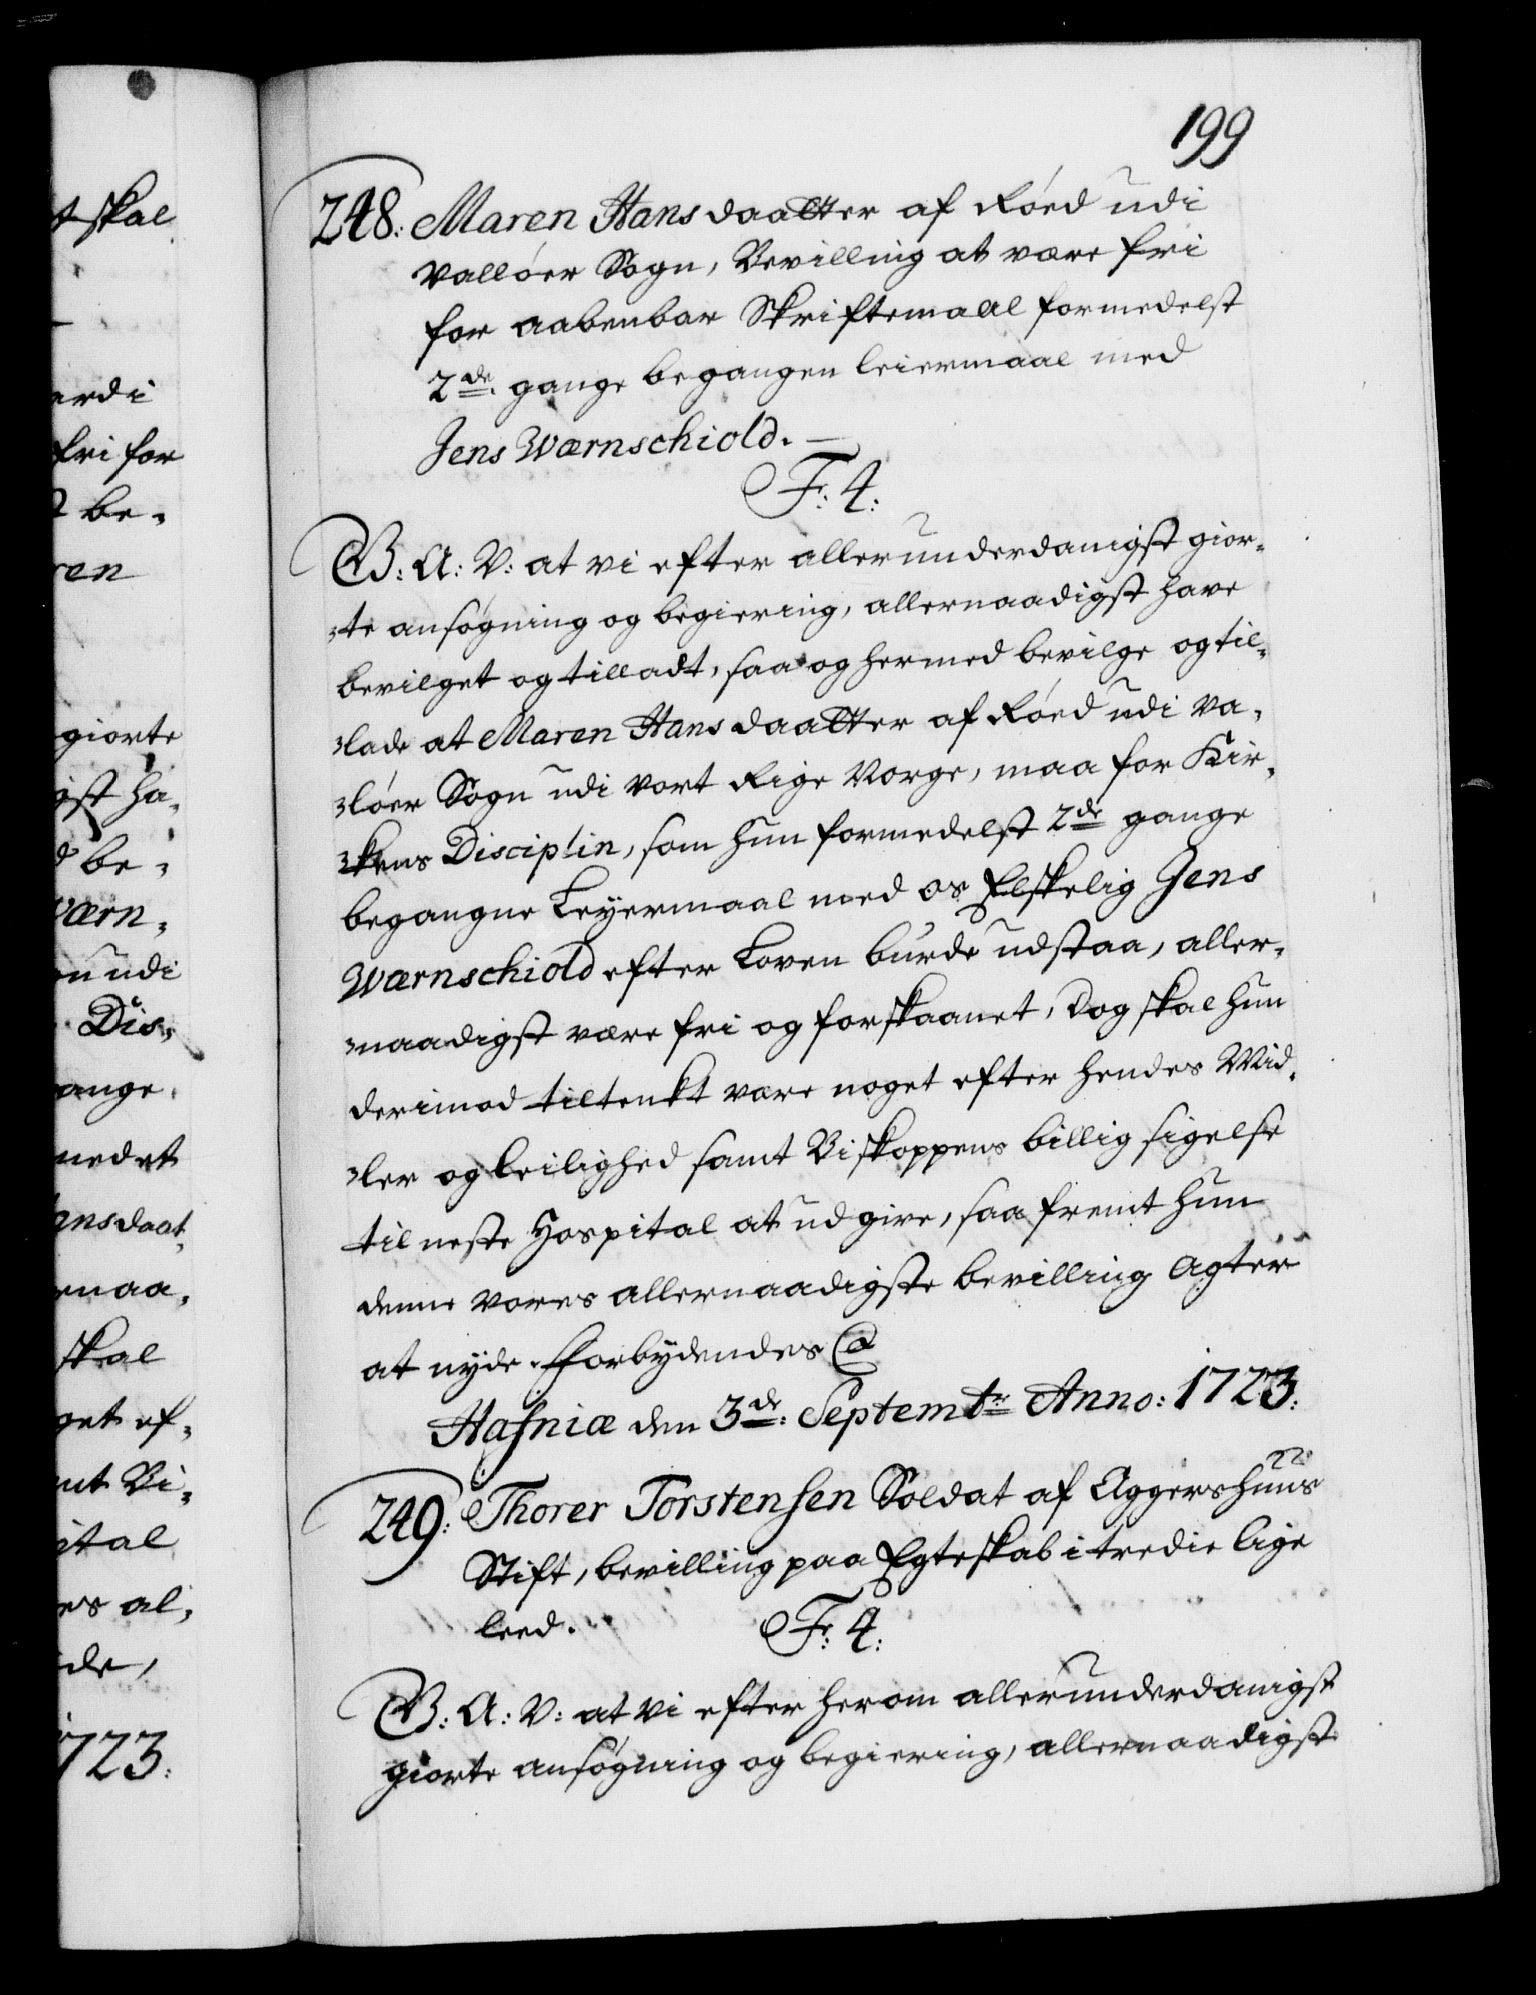 199
248. Maren Hansdaatter af Röed udi
Vallöer Sogn, Bevilling at være fri
for aabenbar Skriftemaal formedelst
2de gange begangen leiermaal med
Jens Wærnschiold. —
F: 4:
B: A: V: at vi efter allerunderdanigst gior-
te ansøgning og begiering, allernaadigst have
bevilget og tilladt, saa og hermed bevilge og til-
lade at Maren Hansdaatter af Röed udi Va-
löer Sogn udi vort Rige Norge, maa for Kir-
kens Disciplin, som hun formedelst 2de gange
begangne Leyermaal med os Elskelig Jens
Wærnschiold efter Loven burde udstaa, aller-
naadigst være fri og forskaanet, Dog skal hun
derimod tiltenkt være noget efter hendes Mid-
ler og leilighed samt Biskoppens billig sigelse
til neste Hospital at udgive, saafremt hun
denne vores allernaadigste bevilling agter
at nyde. Forbydendes @
Hafniæ den 3de: Septembr Anno: 1723:
249: Thorer Torstensen Soldat af Aggershuus
Stift, bevilling paa Egteskab i tredie lige
leed. F: 4:
B: A: V: at vi efter herom allerunderdanigst
giorte ansøgning og begiering, allernaadigst
t skal
erdi
fri for
be-
ren
giorte
gst ha-
d be-
værn-
udi
Dis-
ange
medet
ansdaat-
maa-
skal
get ef-
mt Bi-
ital
es al-
de,
1723: